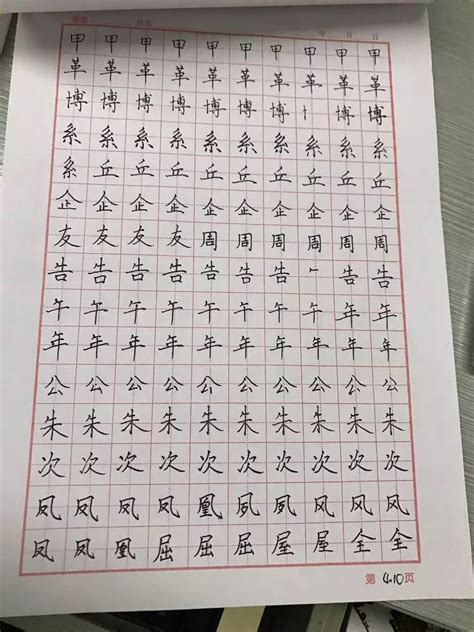 年 月 日
甲 甲 甲 甲 甲 甲 甲 甲 甲 甲
革 革 革 革 革 革 革 革 革 革
博 博 博 博 博 博 博 博 博
系 系 系 系 系 系 系 系 系 系
系 丘 丘 丘 丘 丘 丘 丘 丘 丘
企 企 企 企 企 企 企 企 企 企
友 友 友 友 周 周 周 周 周 周
告 告 告 告 告 告 告 告 告
午 午 午 午 午 午 午 午 午 年
年 年 年 年 年 年 年 年 年 年
公 公 公 公 公 公 公 公 公 公
朱 朱 朱 朱 朱 朱 朱 朱 朱 朱
次 次 次 次 次 次 次 次 次 次
凤 凤 凤 凤 凰 夙 夙 风 风 风
凤 凤 凰 屈 屈 屈 屋 屋 全 全
第 410 页